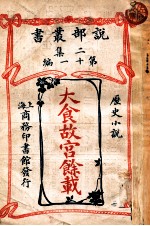 說部叢書
二集
第十一編
歷史小說
大食故宮餘載
上海商務印書館發行